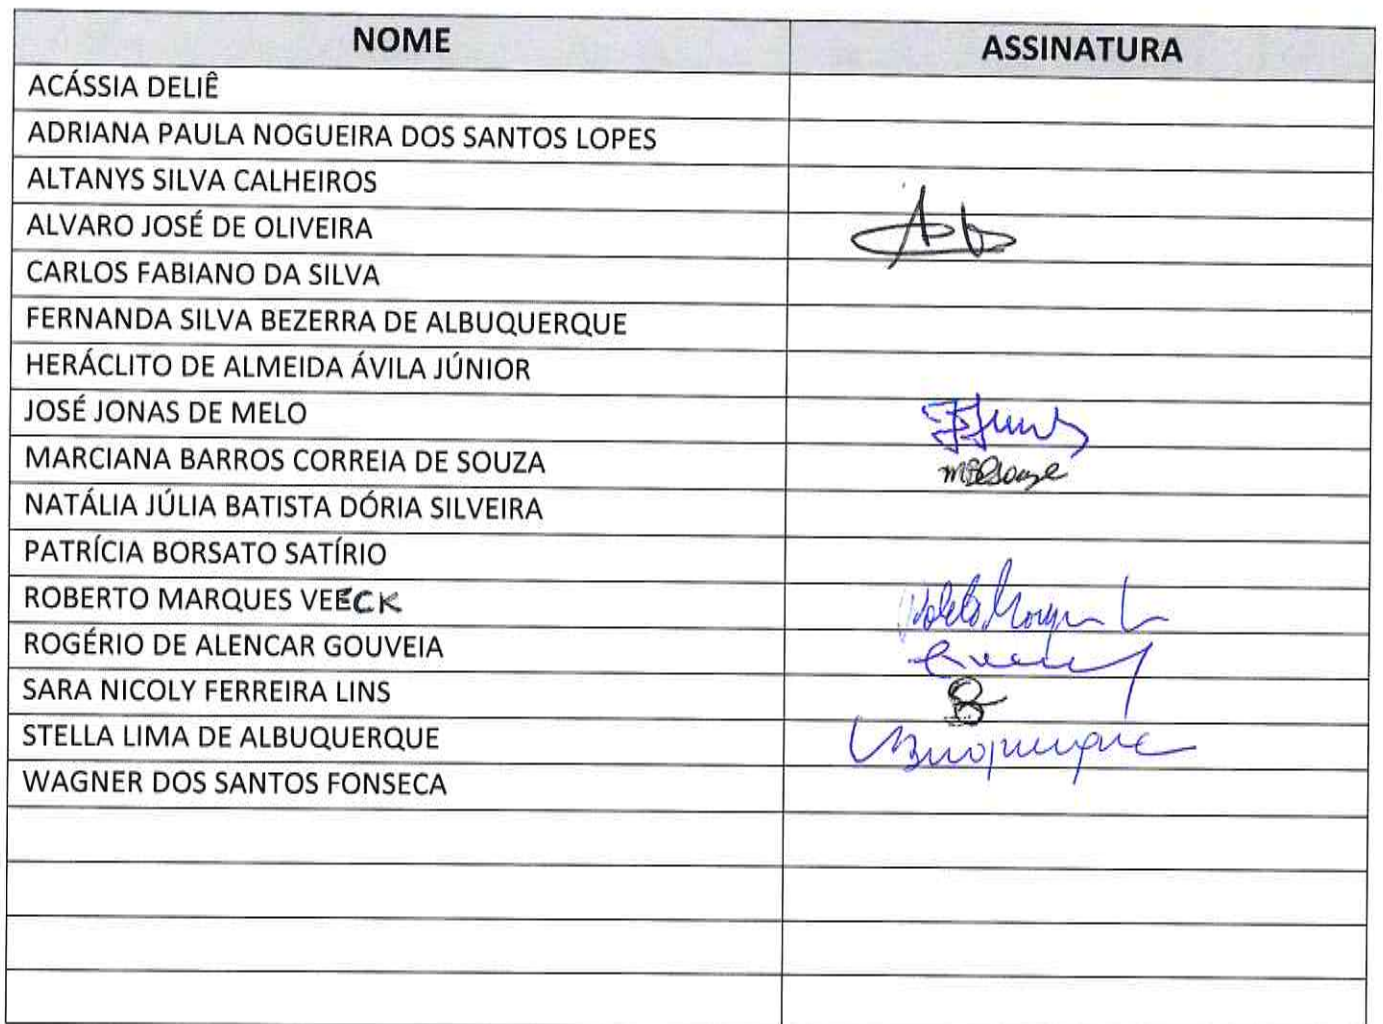 NOME ASSINATURA
ACÁSSIA DELIÊ
ADRIANA PAULA NOGUEIRA DOS SANTOS LOPES
ALTANYS SILVA CALHEIROS
ALVARO JOSÉ DE OLIVEIRA
CARLOS FABIANO DA SILVA
FERNANDA SILVA BEZERRA DE ALBUQUERQUE
HERÁCLITO DE ALMEIDA ÁVILA JÚNIOR
JOSÉ JONAS DE MELO
MARCIANA BARROS CORREIA DE SOUZA
NATÁLIA JÚLIA BATISTA DÓRIA SILVEIRA
PATRÍCIA BORSATO SATÍRIO
ROBERTO MARQUES VEECK
ROGÉRIO DE ALENCAR GOUVEIA
SARA NICOLY FERREIRA LINS
STELLA LIMA DE ALBUQUERQUE
WAGNER DOS SANTOS FONSECA